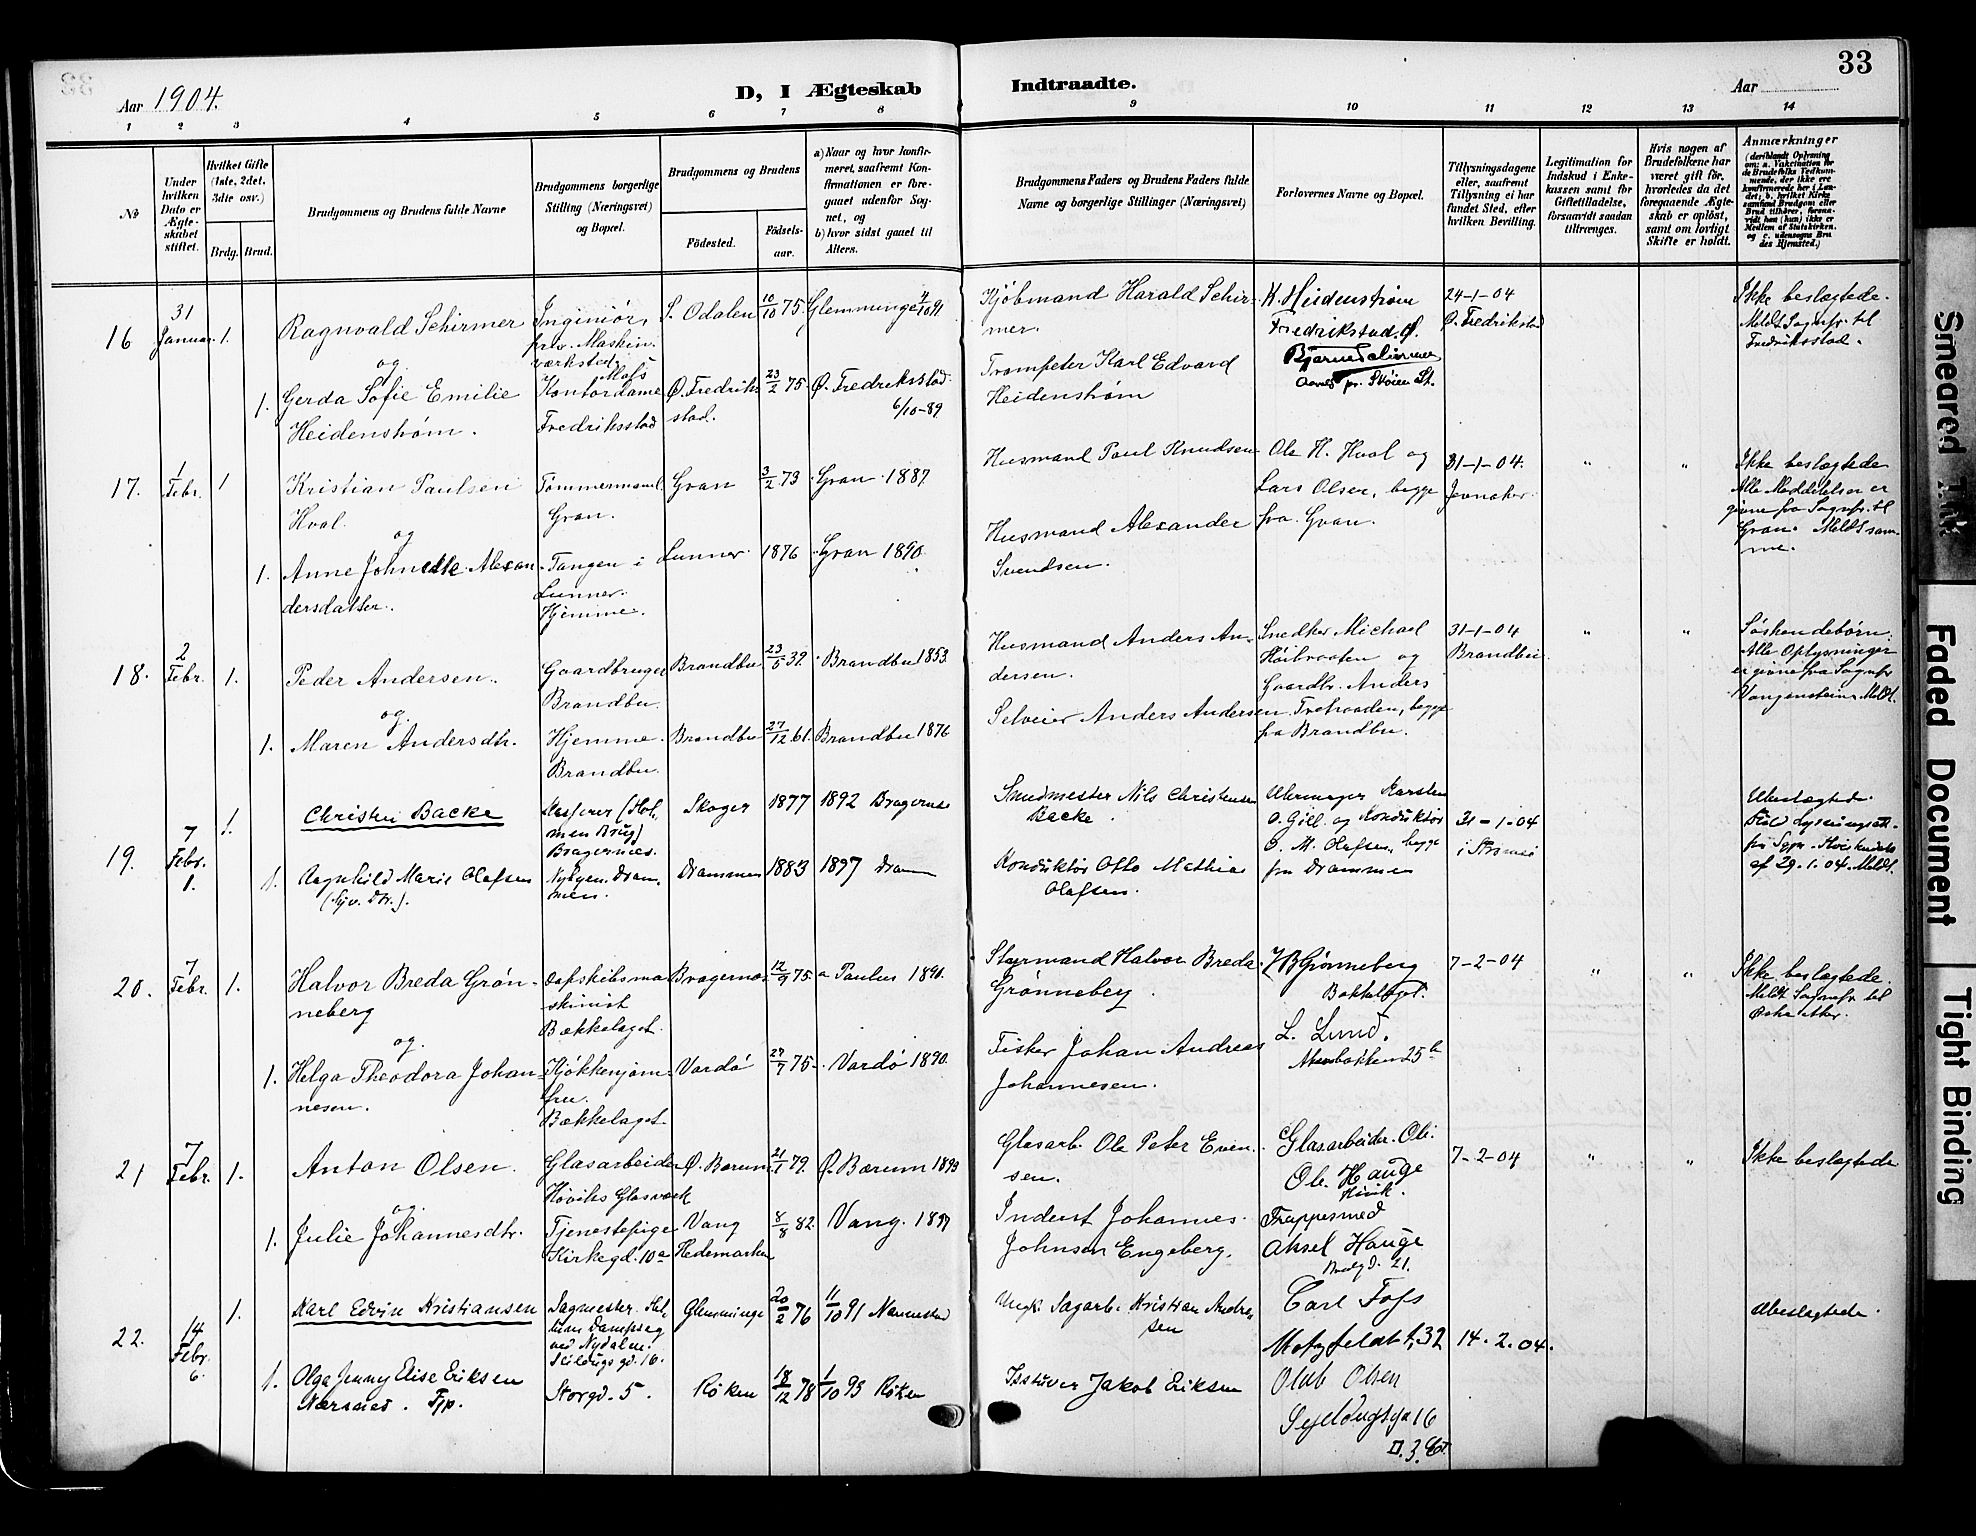 33
Aar 1904.
D, I Ægteskab
Indtraadte.
Aar
1 2 3 4 5 6 7 8 9 10 11 12 13 14
No
Under hvilken Dato er Ægteskabet stiftet.
Hvilket Gifte (1ste, 2det, 3die osv.)
Brdg. Brud.
Brudgommens og Brudens fulde Navne
Brudgommens borgerlige Stilling (Næringsvei) og Bopæl.
Brudgommens og Brudens
Fødested. Fødselsaar.
a) Naar og hvor konfirmeret, saafremt Konfirmationen er foregaaet udenfor Sognet, og
b) hvor sidst gaaet til Alters.
Brudgommens Faders og Brudens Faders fulde Navne og borgerlige Stillinger (Næringsvei)
Forlovernes Navne og Bopæl.
Tillysningsdagene eller, saafremt Tillysning ei har fundet Sted, efter hvilken Bevilling.
Legitimation for Indskud i Enkekassen samt for Giftetilladelse, forsaavidt saadan tiltrænges.
Hvis nogen af Brudefolkene har været gift før, hvorledes da det foregaaende Ægteskab er opløst, samt om lovligt Skifte er holdt.
Anmærkninger
16
31
Januar
1.
Ragnvald Schirmer
Ingeniør,
S. Odalen
10/10 75.
Glemminge
Kjøbmand Harald Schirmer.
K. Heidenstrøm
Fredrikstad. Ø.
24-1-04
Ø. Fredrikstad
Ikke beslægtede.
Meldt Sognepr. til
Fredriksstad.
og
1.
Gerda Sofie Emilie
Heidenstrøm.
Kontordame
Fredriksstad
Ø. Fredriksstad.
23/2 75.
Ø. Fredriksstad
6/10-89
Trompeter Karl Edvard
Heidenstrøm
17.
1
Febr.
1
Kristian Paulsen
Hval.
Tømmermand.
Gran.
Gran
3/2 73
Gran 1887
Husmand Paul Knudsen
Ole H. Hval og
Lars Olsen, begge
fra Gran.
31-1-04.
Jevnaker.
"
"
Ikke beslægtede
Alle Meddelelser er
givne fra Sognepr. til
Gran. Meldt samme.
og
1.
Anne Johnette Alexandersdatter.
Tangen i
Lunner.
Hjemme.
Lunner
1876
Gran 1890.
Husmand Alexander
Svendsen.
18.
2
Febr.
1.
Peder Andersen.
Gaardbruger
Brandbu.
Brandbu
23/5 32.
Brandbu 1853.
Husmand Anders Andersen.
Snedker Michael
Høibraaten og
Gaardbr. Anders
Tretraaden, begge
fra Brandbu.
31-1-04
Brandbu.
"
"
Søskendebørn.
Alle Oplysninger
er givne fra Sognepr.
Vangenstein. Meldt.
og
1.
Maren Andersdtr.
Hjemme.
Brandbu.
Brandbu
27/12 61.
Brandbu 1876
Selveier Anders Andersen
19.
7
Febr.
1.
1.
Christen Backe
Kasserer (Holmen Brug)
Bragernes.
Skoger
1877
1892 Bragernes
Smedmester Nils Christensen
Backe.
Uhrmager Karsten
O. Gill. og Konduktør
O. M. Olafsen, begge
fra Drammen
31-1-04
i Strømsø
Ubeslægtede.
af 29.1.04. Meldt.
1.
Ragnhild Marie Olafsen
(Syv. Dtr.).
Nybyen. Drammen.
Drammen
1883
1897
Konduktør Otto Mathias
Olafsen.
20.
7
Febr.
1.
Halvor Breda Grønneberg
Dampskibsmaskinist
Bækkelaget.
Bragernes
12/9 75.
Paulus 1890.
Styrmand Halvor Breda
Grønneberg.
H B Grønneberg
Bækkelaget.
L. Lund.
7-2-04
"
"
Ikke beslægtede.
Meldt Sognepr. til
og.
1.
Helga Theodora Johannesen.
Kjøkkenjomfru.
Bækkelaget.
Vardø
27/7 75.
Vardø 1890.
Fisker Johan Andreas
Johannesen.
21
7
Febr.
1.
Anton Olsen.
Glasarbeider
Høviks Glasværk
Ø. Bærum
21/1 79.
Ø. Bærum 1893
Glasarb. Ole Peter Evensen.
Glasarbeider. Ole.
Ole. Hauge
Høvik.
7-2-04
"
"
Ikke beslægtede
og.
1.
Julie Johannesdtr.
Tjenestepige
Kirkegd. 10a
Vang
Hedemarken
8/8 82.
Vang. 1897
Inderst Johannes
Johnsen Engeberg.
Trappesmed
Aksel Hauge
22.
14
Febr.
6.
1.
Karl Edvin Kristiansen
Sagmester
ved Nydalen.
Glemminge
20/2 76
11/10 91 Nannestad
Ungk. Sagarb. Kristian Andresen
Carl Foss
Motzfeldt g. 32
14.2.04.
Ubeslægtede.
1.
Olga Jenny Elise Eriksen
Nærsnes. Tjp.
Storgd. 5.
Røken
18/12 78
1/10 93 Røken
Jakob Eriksen
Olub Olsen
Seildugsga 16
Smeared Ink
Faded Document
Tight Binding